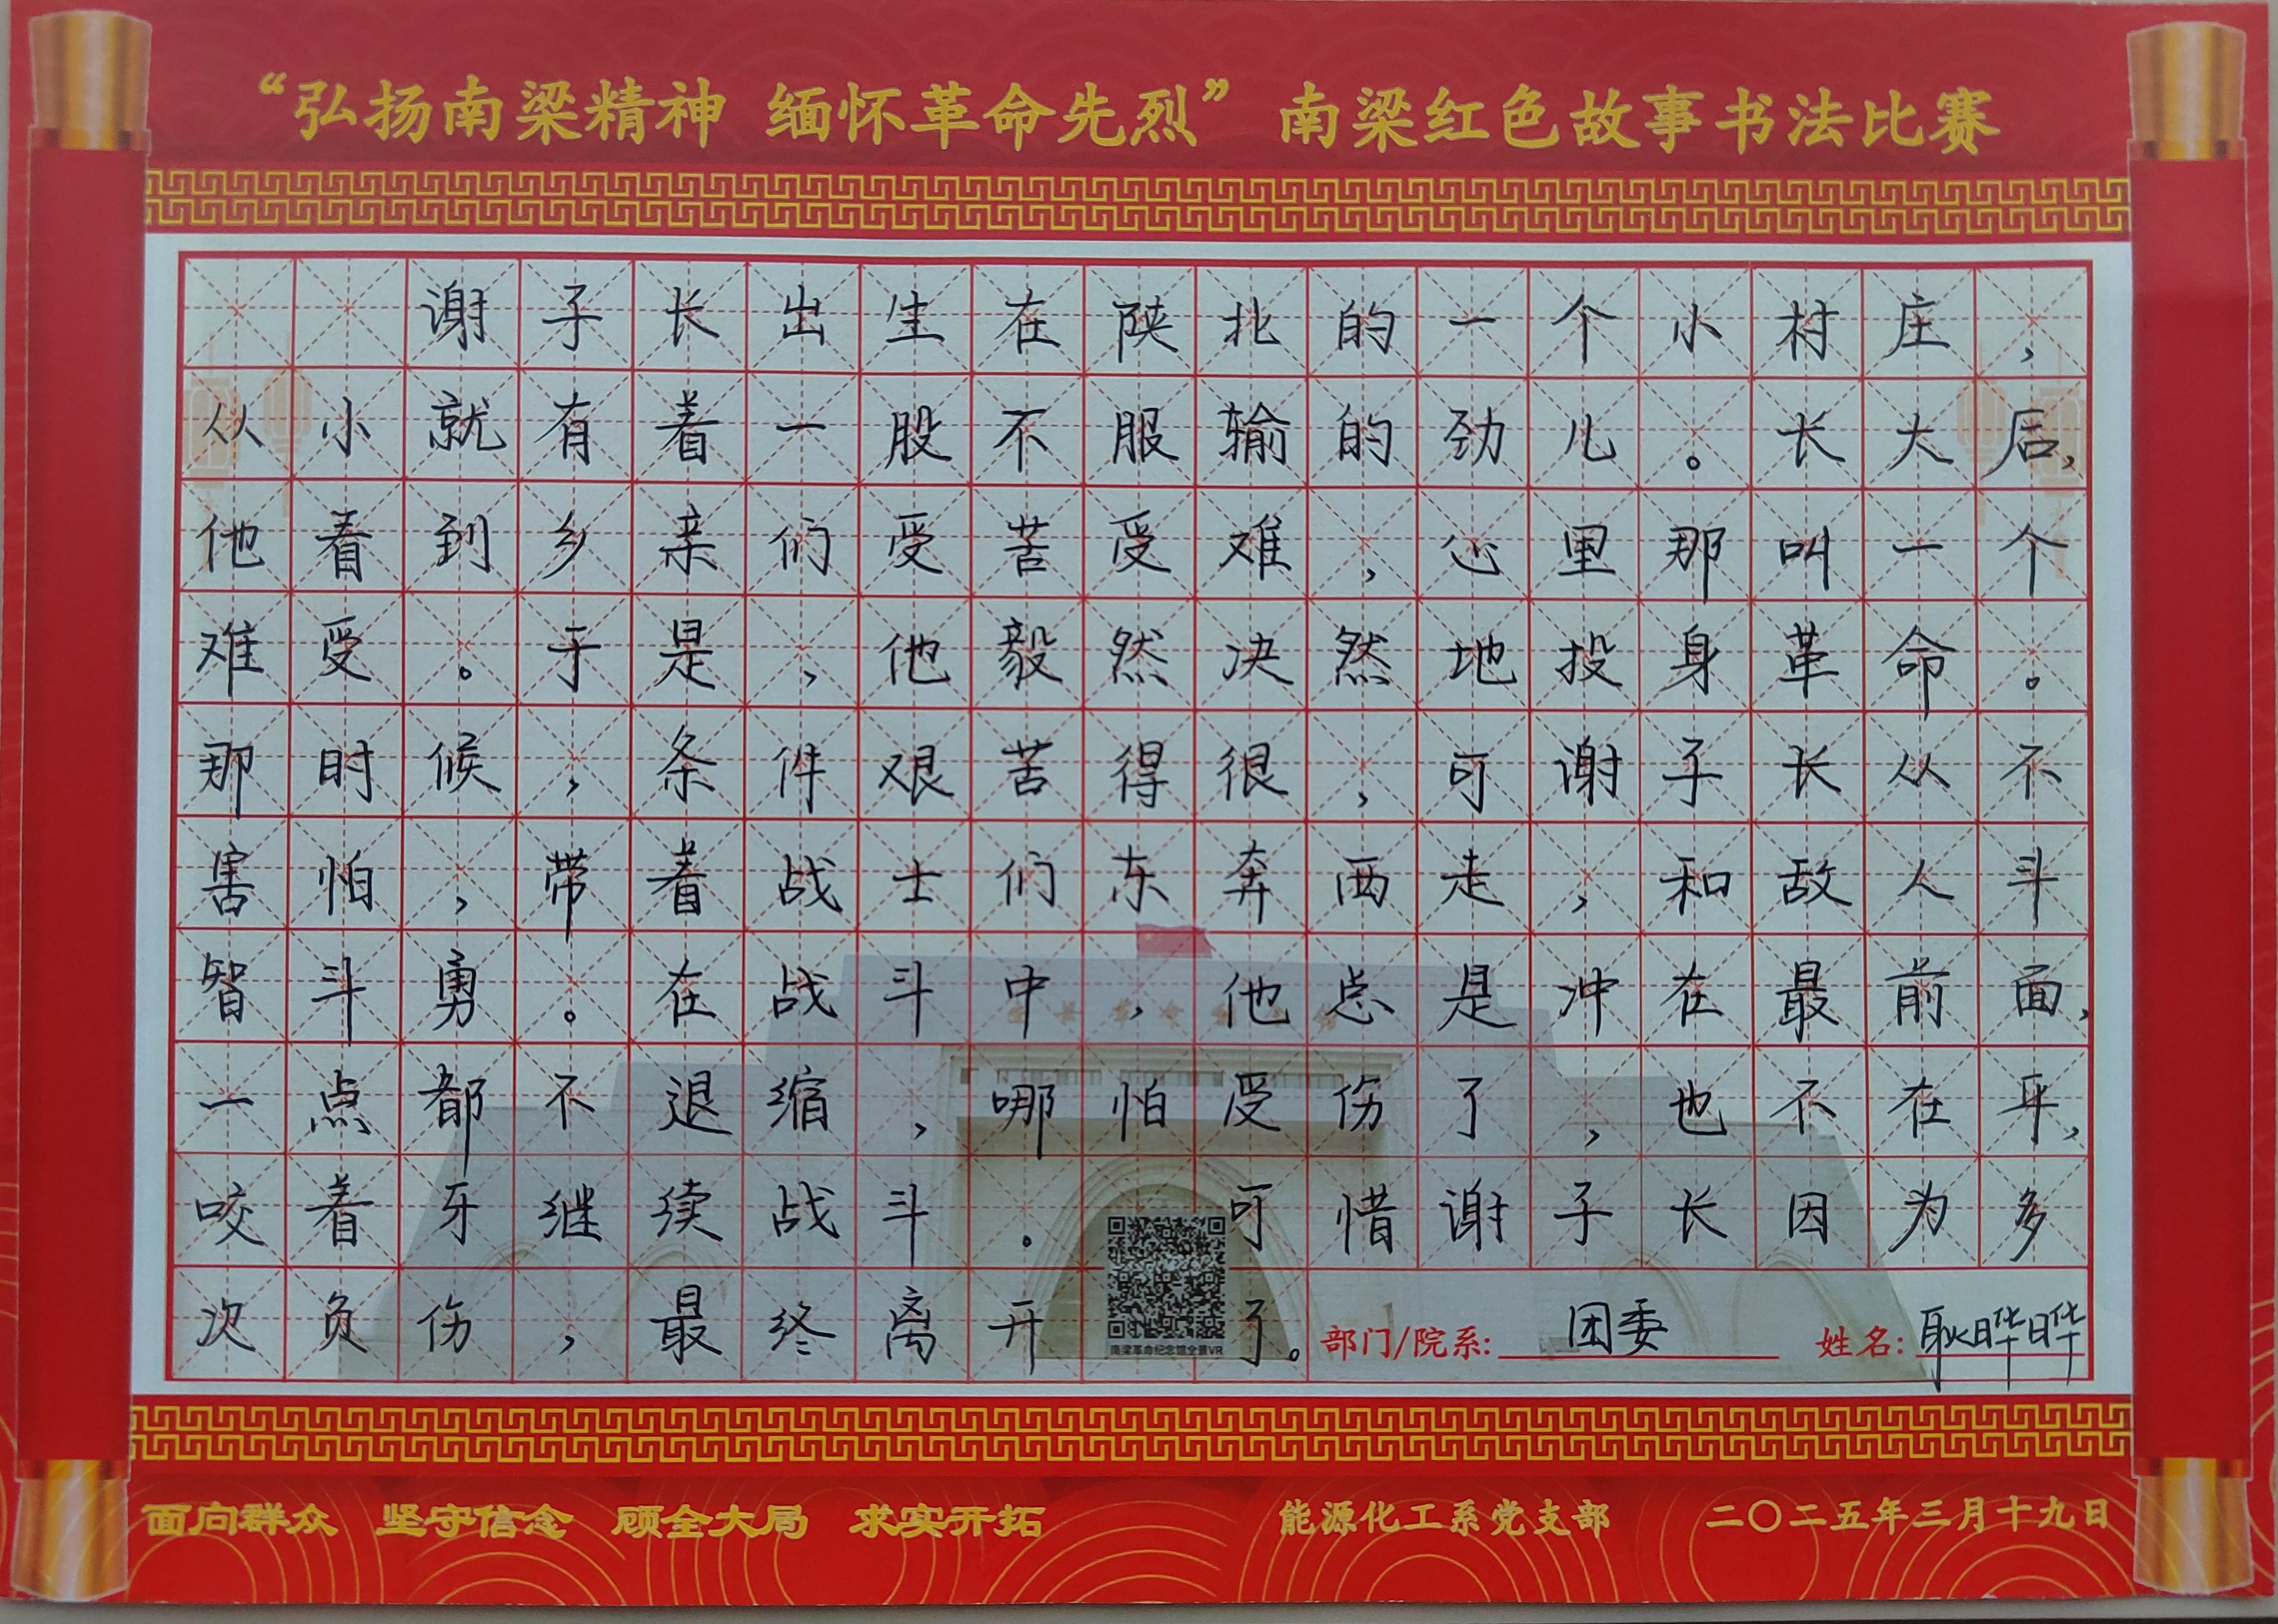 “弘扬南梁精神 缅怀革命先烈” 南梁红色故事书法比赛
谢子长出生在陕北的一个小村庄，
从小就有着一股不服输的劲儿。长大后，
他看到乡亲们受苦受难，心里那叫一个
难受。于是，他毅然决然地投身革命。
那时候，条件艰苦得很，可谢子长从不
害怕，带着战士们东奔西走，和敌人斗
智斗勇。在战斗中，他总是冲在最前面，
一点都不退缩，哪怕受伤了，也不在乎，
咬着牙继续战斗。可惜谢子长因为多
次负伤，最终离开了。
南梁革命纪念馆全景VR
部门/院系：团委 姓名：耿晔晔
面向群众 坚守信念 顾全大局 求实开拓 能源化工系党支部 二〇二五年三月十九日